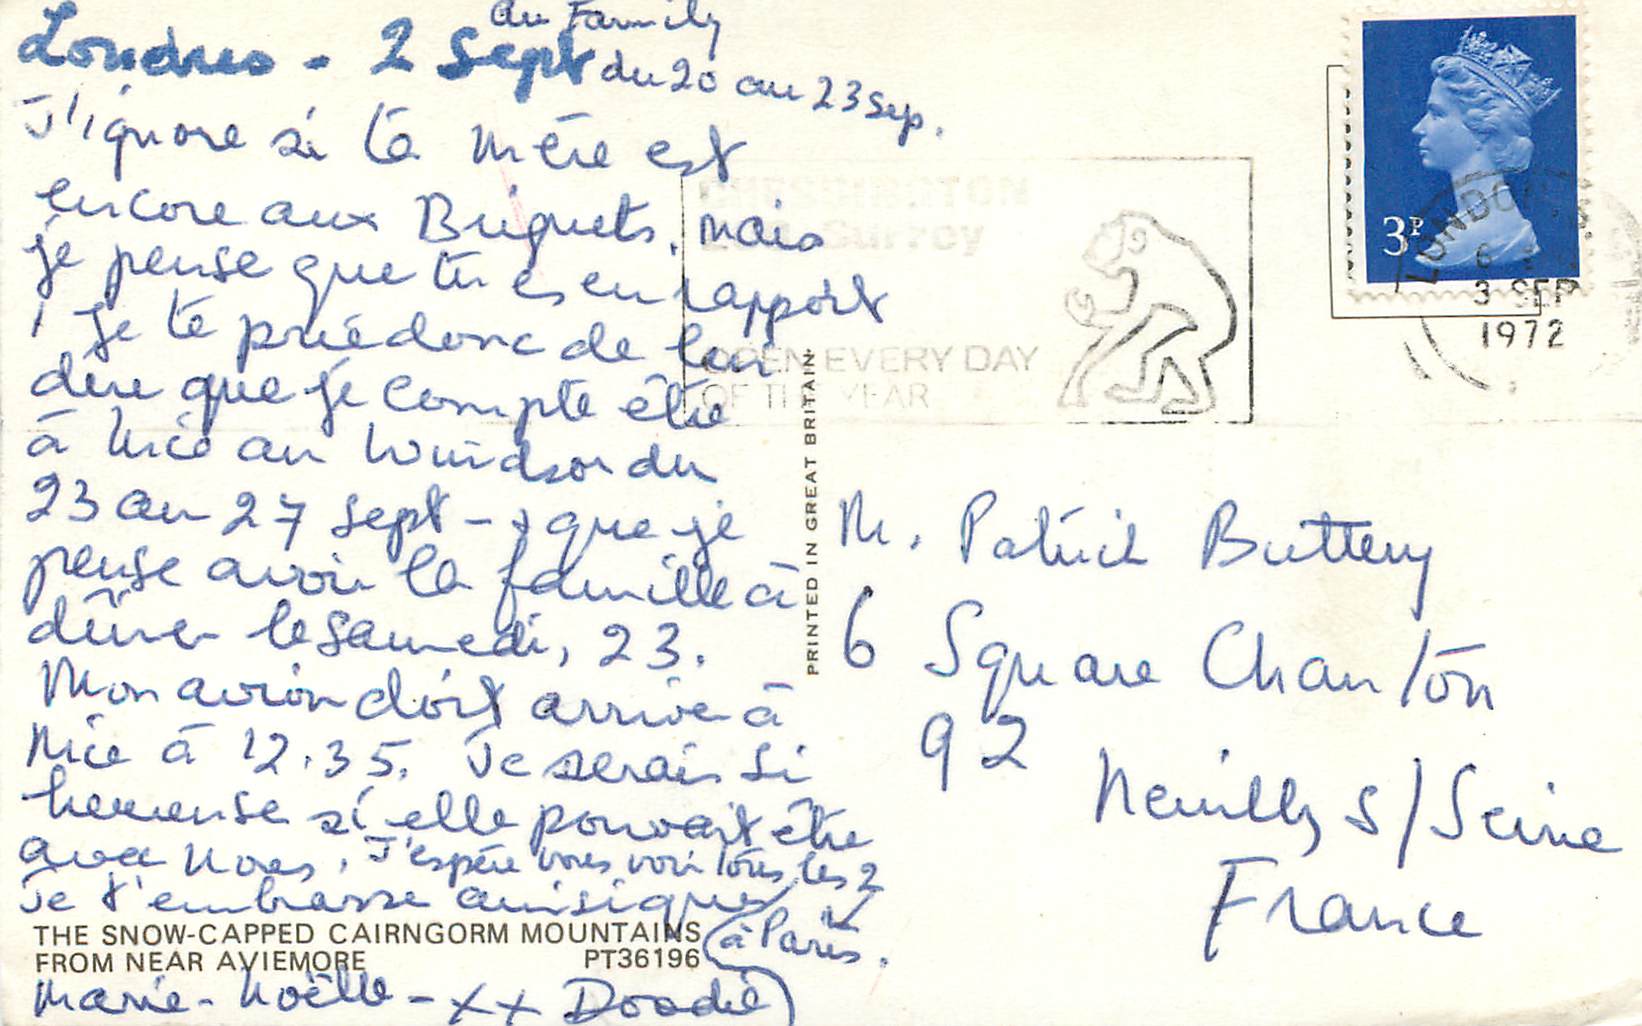 Londres - 2 Sept
au Family
du 20 au 23 Sep.
J'ignore si ta mère est
encore aux Briquets, mais
je pense que tu es en rapport
! Je te prie donc de lui
dire que je compte être
à Nice au Windsor du
23 au 27 Sept - & que je
pense avoir la famille à
dîner le samedi, 23.
Mon avion doit arriver à
Nice à 12.35. Je serais si
heureuse si elle pouvait être
avec nous. J'espère vous voir tous les 2
à Paris.
Je t'embrasse ainsi que
Marie-Noëlle - xx
THE SNOW-CAPPED CAIRNGORM MOUNTAINS
FROM NEAR AVIEMORE PT36196
PRINTED IN GREAT BRITAIN
CHESSINGTON
ZOO Surrey
OPEN EVERY DAY
OF THE YEAR
3P
LONDON
3 SEP
1972
M. Patrick Buttery
6 Square Chanton
92
Neuilly s/Seine
France